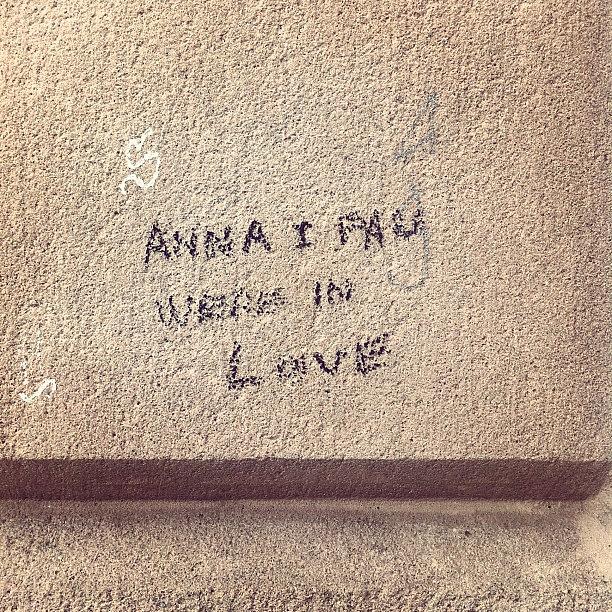 ANNA I PAU
WERE IN
LOVE